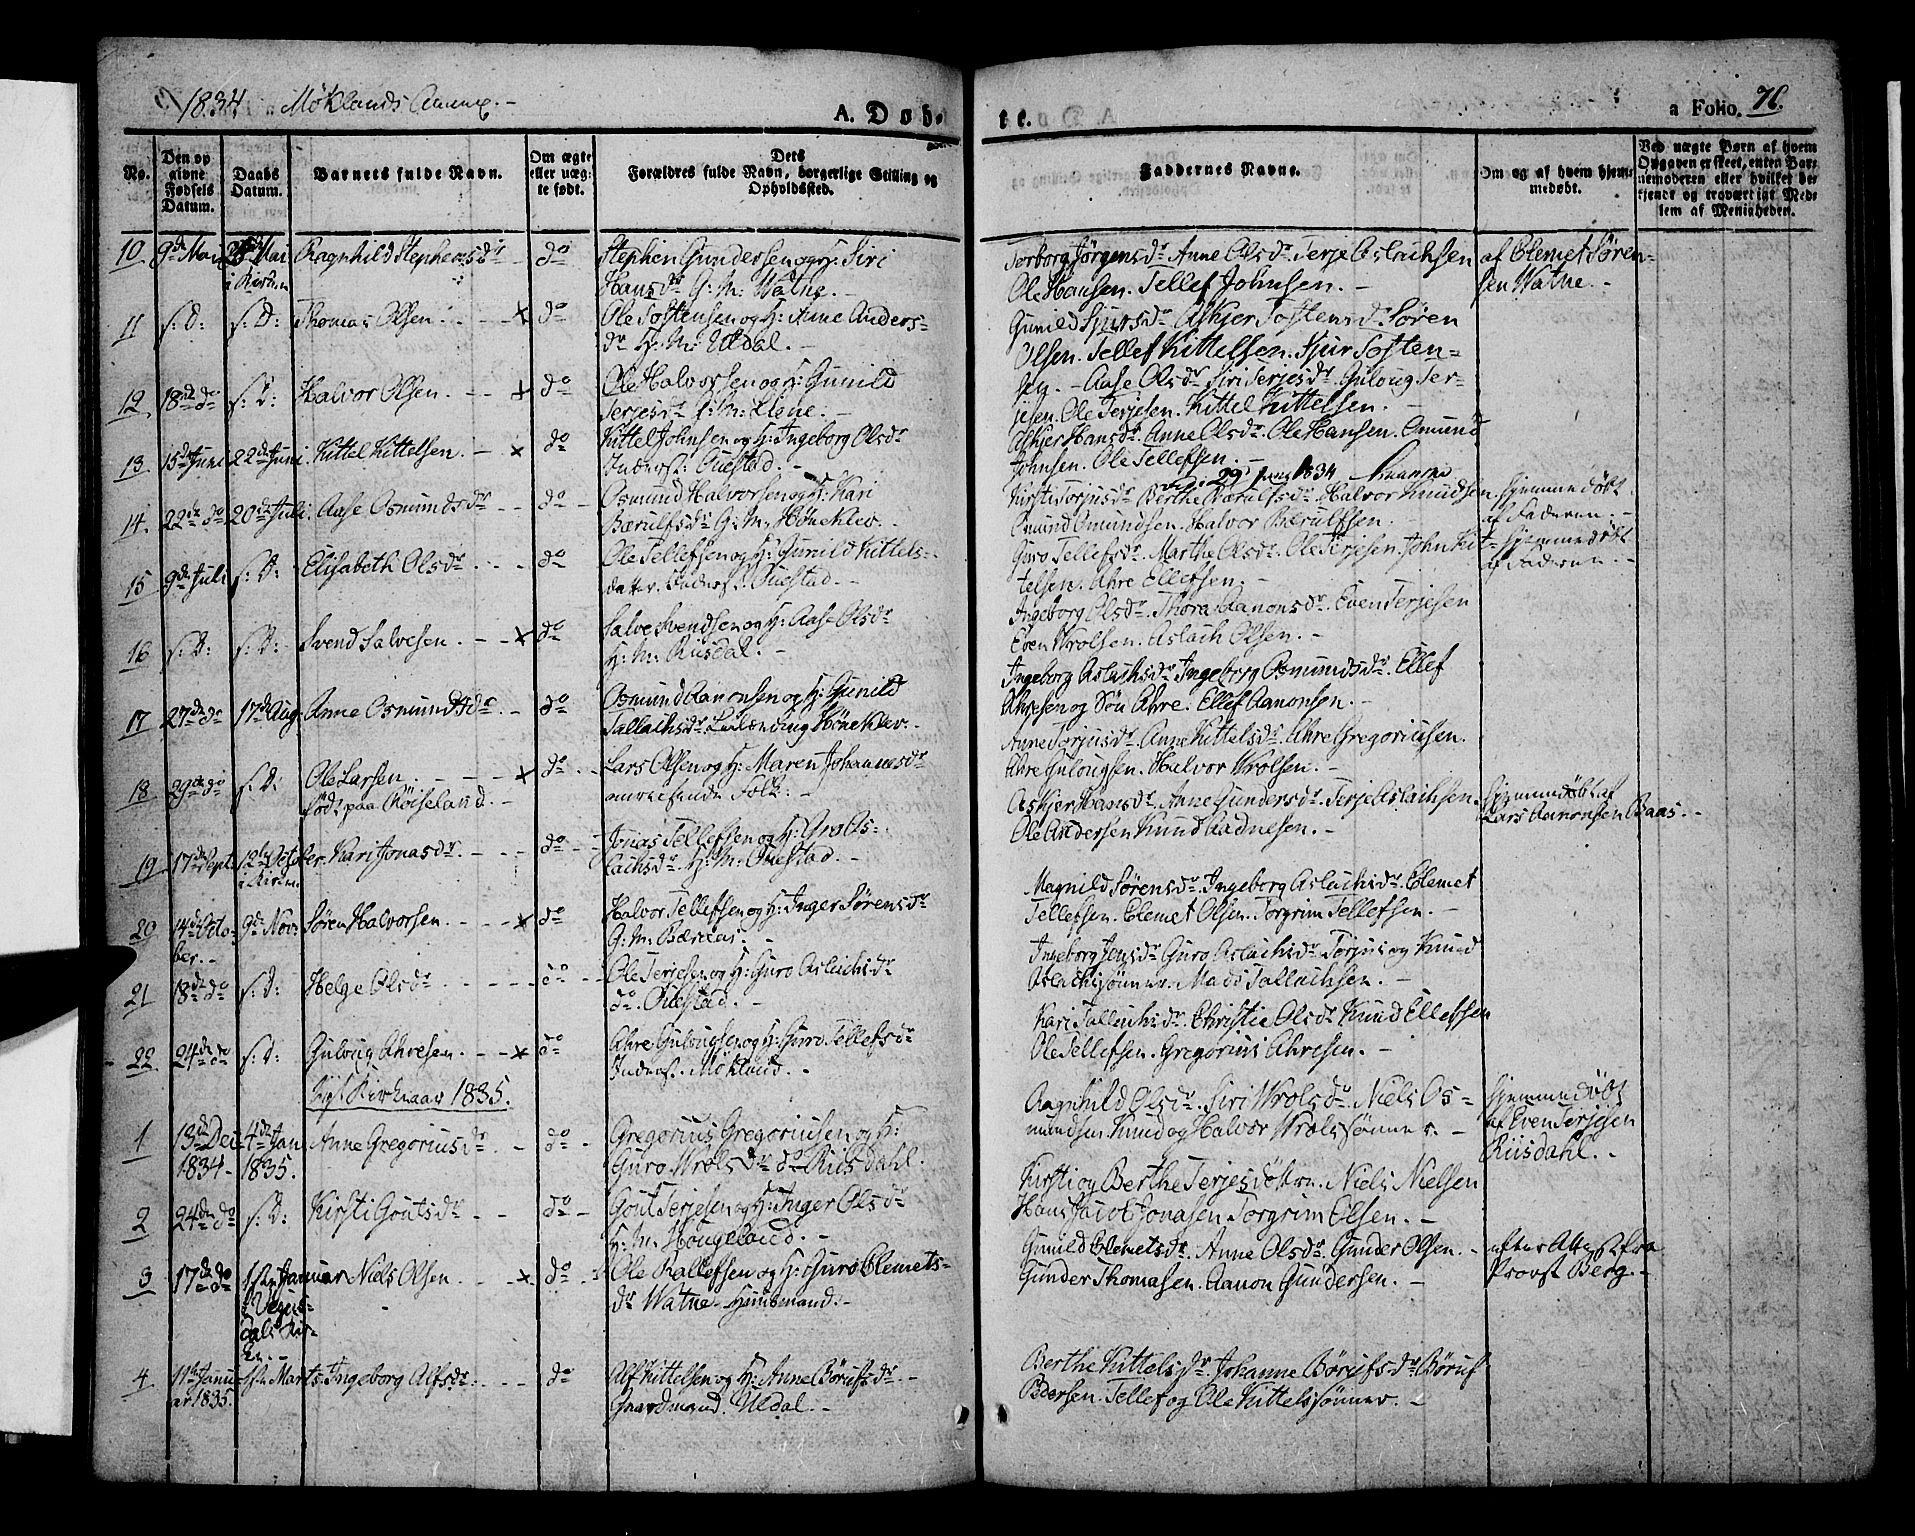 1834. Möklands Annex. -
A. Døb-
te.
a Folio. 76.
No.
Den opgivne Fødsels Datum.
Daabs Datum.
Barnets fulde Navn.
Om ægte eller uægte født.
Dets Forældres fulde Navn, borgerlige Stilling og Opholdssted.
Faddernes Navne.
Om og af hvem hjemmedøbt.
Ved uægte Børn af hvem Opgaven er skeet, enten Barnemoderen eller hvilket bekjendt og troværdigt Medlem af Menigheden.
10 9de Mai Mai i Kirken Ragnhild Stephensdr do Stephen Gundersen og H: Siri
Hansdr G: M: Watne. -
Torborg Jørgensdr Anne Olsdr Terje Aslachsen
Ole Hansen. Tellef Johnsen. -
af Clemet Søren-
sen Watne. -
11 s: D: s: D: Thomas Olsen. - - x do Ole Tostensen og H: Anne Anders-
dr H: M: Uldal. -
Gunild Sjursdr Askjer Tostensd. Søren
Olsen. Tellef Kittelsen. Sjur Tosten-
sen. -
12 18de do s: D: Halvor Olsen. - - x do Ole Halvorsen og H: Gunild
Terjesdr G: M: Llene. -
Aase Olsdr Siri Terjesdr Guloug Ter-
jesen. Ole Terjesen. Kittel Kittelsen. -
13 15de Juni 22de Juni Kittel Kittelsen. - x do Kittel Johnsen og H: Ingeborg Olsdr
Inderst. Ouestad. -
Askjer Hansdr Anne Olsdr Ole Hansen. Omund
Johnsen. Ole Tellefsen. -
29 Juni 1834
14. 22de do 20de Juli. Aase Osmundsdr - - do - Osmund Halvorsen og H: Kari
Bærulfsdr G: M: Höneklev. -
Kirsti Torjusdr Berthe Bærulfsdr Halvor Knudsen
Omund Omundsen. Halvor Bærulfsen. -
hjemmedöbt
af Faderen. -
15 9de Juli s: D: Elisabeth Olsdr - - do - Ole Tellefsen og H: Gunild Kittels-
datter. Inderst. Ouestad. -
Guro Tellefsdr Marthe Olsdr Ole Terjesen. John Kit-
telsen. Ahre Ellefsen. -
hjemmedöbt
af Faderen. -
16 s: D: s: D: Svend Salvesen. - - x do Salve Svendsen og H: Aase Olsdr
H: M: Riisdal. -
Ingeborg Olsdr Thora Aanonsdr Even Terjesen
Even Wrolsen. Aslach Olsen. -
17 27de do 17de Aug. Anne Osmundsdr. - do Osmund Aanonsen og H: Gunild
Tallachsdr. Leilænding Höneklev. -
Ingeborg Aslachsdr Ingeborg Osmundsdr. Ellef
Ahresen og Søn Ahre. Ellef Aanonsen. -
18 29de do s: D: Ole Larsen. - - x do - Lars Olsen og H: Maren Johannesdr
omreisende Folk. -
födt paa Röiseland. -
Anne Torjusdr. Anne Kittelsdr. Ahre Gregoriusen.
Ahre Gulougsen. Halvor Wrolsen. -
19 17de Sept. 12te October. i Kirken. Kari Jonasdr. - - do - Jonas Tellefsen og H: Gro As-
lachsdr. H: M: Ouestad. -
Askjer Hansdr. Anne Gundersdr. Terje Aslachsen.
Ole Andersen Knud Aadnesen. -
hjemmedöbt af
Lars Aanonsen Baas. -
20 14de Octo-
ber. - 9de Nov: Søren Halvorsen. - - x do Halvor Tellefsen og H: Inger Sørensdr
G: M:
Magnild Sørensdr. Ingeborg Aslachsdr. Clemet
Tellefsen. Clemet Olsen. Torgrim Tellefsen. -
21 18de do s: D: Helge Olsdr - - - do - Ole Terjesen og H: Guro Aslachsdr
do. Ouestad. -
Ingeborg Jensdr Guro Aslachsdr. Torjus og Knud
Aslachssønner. Mads Tallachsen. -
22 24de do s: D: Guloug Ahresen. - - x do Ahre Gulougsen og H: Guro Tellefsdr
Inderst. Mökland. -
Kari Tallachsdr. Christie Olsdr Knud Ellefsen
Ole Tellefsen. Gregorius Ahresen. -
Nyt Kirkeaar 1835.
1 13de Dec 1834 - 4de Jan 1835. Anne Gregoriusdr. - do - Gregorius Gregoriusen og H:
Guro Wrolsdr do Riisdahl.
Ragnhild Olsdr. Siri Wrolsdr Niels Os-
mundsen Knud og Halvor Wrolssønner. -
hjemmedöbt
af Even Terjesen
Riisdahl. -
2 24de do s: D: Kirsti Goutsdr - - do - Gout Terjesen og H: Inger Olsdr
H: M: Hougeland. -
Kirsti og Berthe Terjesdötre. Niels Nielsen
Hans Jacob Jonasen Torgrim Olsen. -
3 17de do 1ste Januar
i Vegus-
dals Kir-
ken. - Niels Olsen. - - x do - Ole Rallefsen og H: Guro Clemets-
dr Watne - Huusmand. -
Gunild Clemetsdr. Anne Olsdr. Gunder Olsen. -
Gunder Thomasen. Aanon Gundersen. -
efter Attest fra
Provst Berg. -
4 11te Janu-
ar 1835. 1ste Marts. Ingeborg Alfsdr. - - do Alf Kittelsen og H: Anne Börufsdr. -
Gaardmand. Uldal. -
Berthe Kittelsdr Johanne Börufsdr Böruf
Pedersen. Tellef og Ole Kittelssönner. -